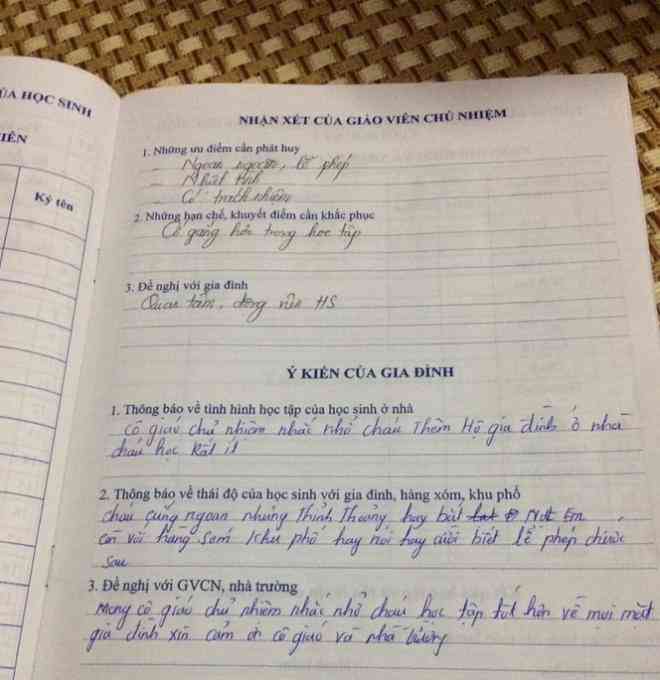 ỦA HỌC SINH
IÊN
Ký tên
NHẬN XÉT CỦA GIÁO VIÊN CHỦ NHIỆM
1. Những ưu điểm cần phát huy
Ngoan ngoãn, lễ phép
Nhiệt tình
Có trách nhiệm
2. Những hạn chế, khuyết điểm cần khắc phục
Cố gắng hơn trong học tập
3. Đề nghị với gia đình
Quan tâm, động viên HS
Ý KIẾN CỦA GIA ĐÌNH
1. Thông báo về tình hình học tập của học sinh ở nhà
cô giáo chủ nhiệm nhắc nhở cháu Thêm Hộ gia đình ở nhà
cháu học Rất ít
2. Thông báo về thái độ của học sinh với gia đình, hàng xóm, khu phố
cháu cũng ngoan nhưng Thỉnh Thoảng hay bắt Nạt Em
còn với hàng sóm khu phố hay nói hay cười biết lễ phép chước
sau
3. Đề nghị với GVCN, nhà trường
Mong cô giáo chủ nhiệm nhắc nhở cháu học tập tốt hơn về mọi mặt
gia đình xin cảm ơn cô giáo và nhà trường